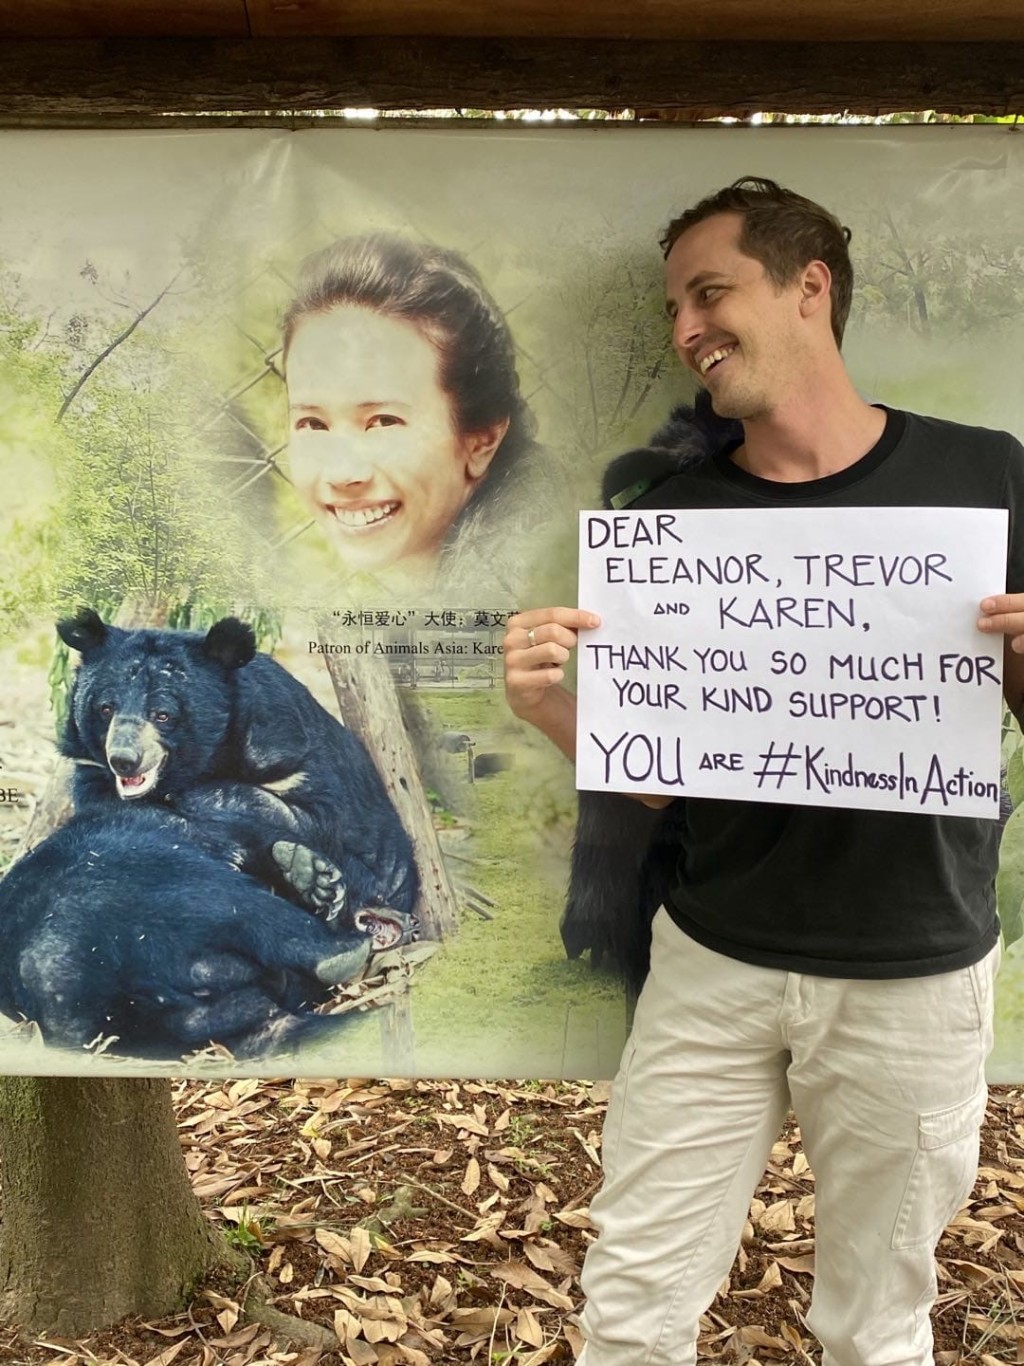 "永恒爱心"大使：莫文
Patron of Animals Asia: Kare
BE
DEAR
ELEANOR, TREVOR
AND KAREN,
THANK YOU SO MUCH FOR
YOUR KIND SUPPORT!
YOU ARE #KindnessInAction